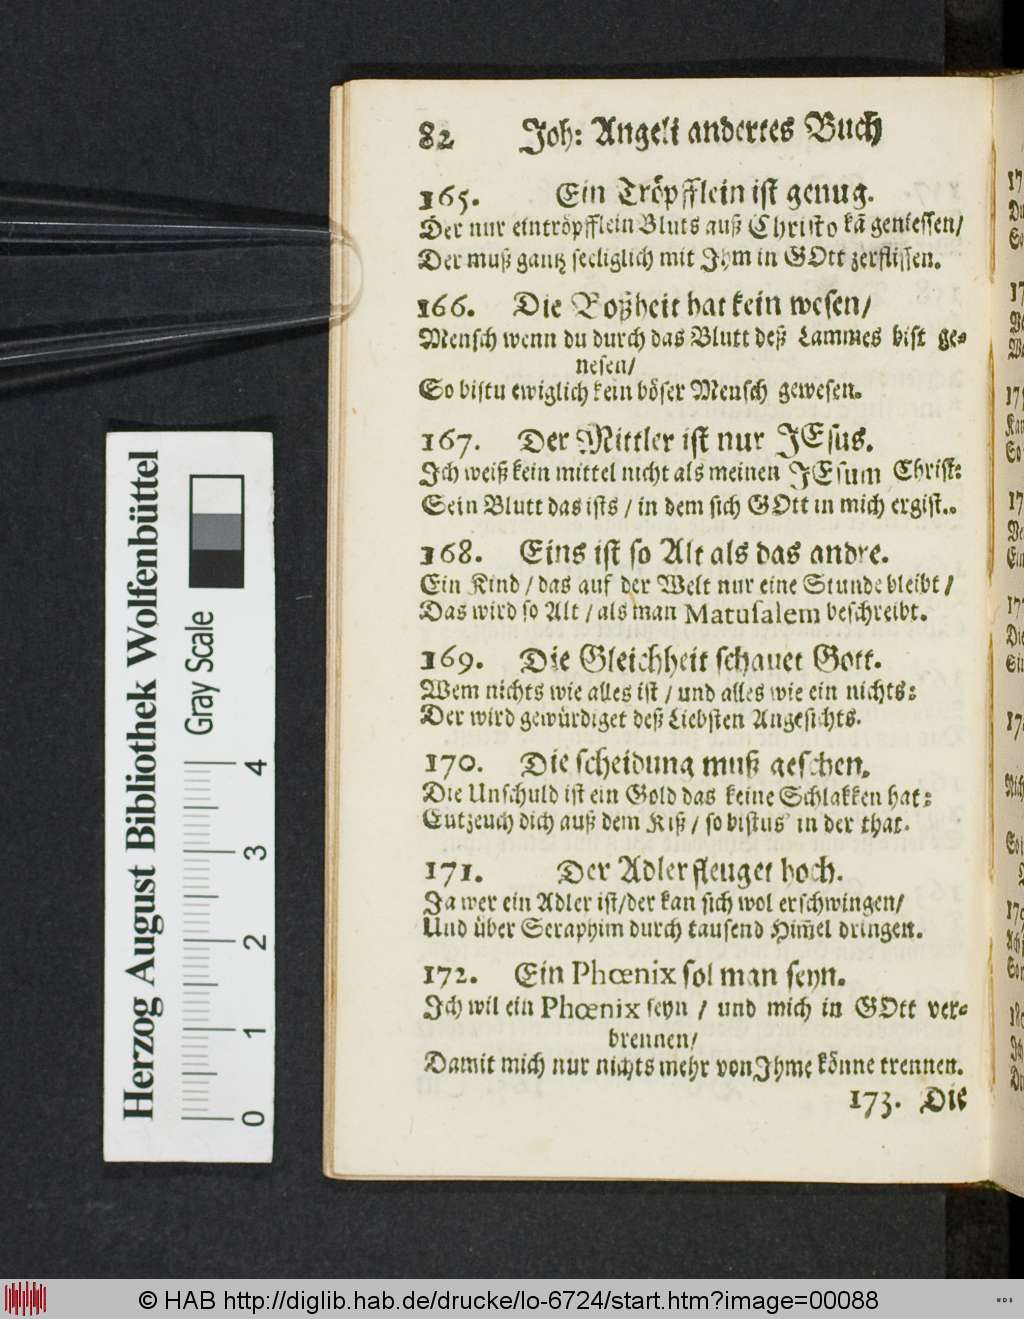 82 Joh: Angeli andertes Buch
165. Ein Tröpfflein ist genug.
Der nur ein tröpfflein Bluts auß Christo kã geniessen/
Der muß gantz seeliglich mit Jhm in GOtt zerflissen.
166. Die Boßheit hat kein wesen/
Mensch wenn du durch das Blutt deß Lammes bist ge-
nesen/
So bistu ewiglich kein böser Mensch gewesen.
167. Der Mittler ist nur JEsus.
Jch weiß kein mittel nicht als meinen JEsum Christ:
Sein Blutt das ists / in dem sich GOtt in mich ergist..
168. Eins ist so Alt als das andre.
Ein Kind / das auf der Welt nur eine Stunde bleibt /
Das wird so Alt / als man Matusalem beschreibt.
169. Die Gleichheit schauet Gott.
Wem nichts wie alles ist / und alles wie ein nichts:
Der wird gewürdiget deß Liebsten Angesichts.
170. Die scheidung muß geschen.
Die Unschuld ist ein Gold das keine Schlakken hat:
Entzeuch dich auß dem Kiß / so bistus in der that.
171. Der Adler fleuget hoch.
Ja wer ein Adler ist/der kan sich wol erschwingen/
Und über Seraphim durch tausend Him̃el dringen.
172. Ein Phœnix sol man seyn.
Jch wil ein Phœnix seyn / und mich in GOtt ver-
brennen/
Damit mich nur nichts mehr von Jhme könne trennen.
173. Die
Herzog August Bibliothek Wolfenbüttel
Gray Scale
0 1 2 3 4
© HAB http://diglib.hab.de/drucke/lo-6724/start.htm?image=00088